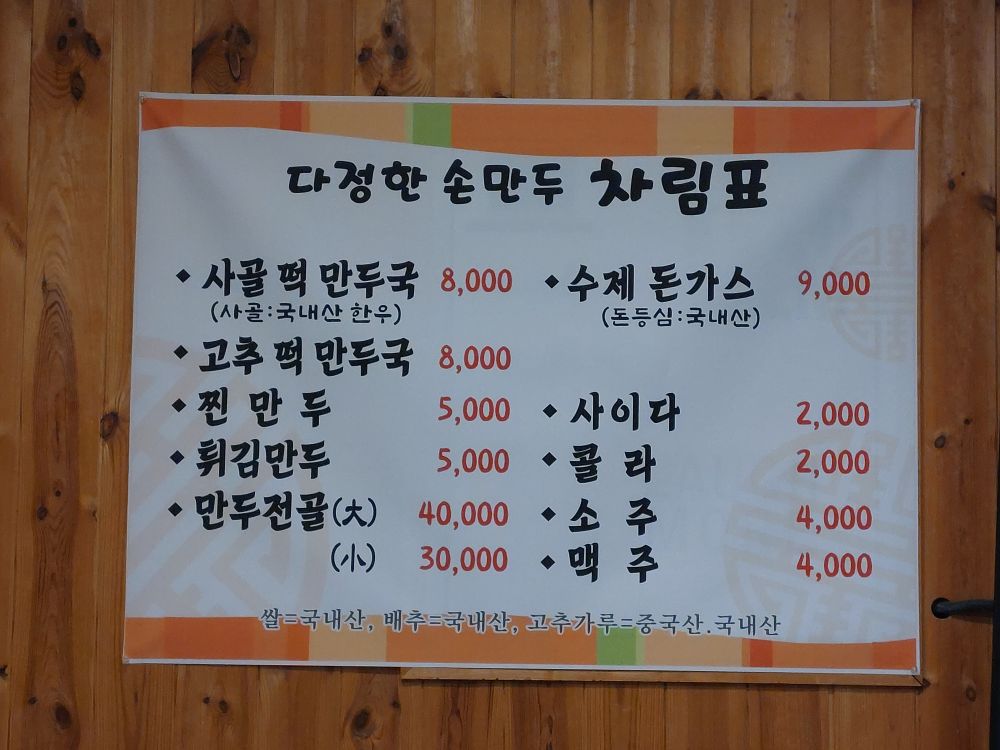 다정한 손만두 차림표
◆ 사골 떡 만두국 8,000
(사골:국내산 한우)
◆ 고추 떡 만두국 8,000
◆ 찐 만 두 5,000
◆ 튀김만두 5,000
◆ 만두전골(大) 40,000
(小) 30,000
◆ 수제 돈가스 9,000
(돈등심:국내산)
◆ 사이다 2,000
◆ 콜 라 2,000
◆ 소 주 4,000
◆ 맥 주 4,000
쌀=국내산, 배추=국내산, 고추가루=중국산.국내산